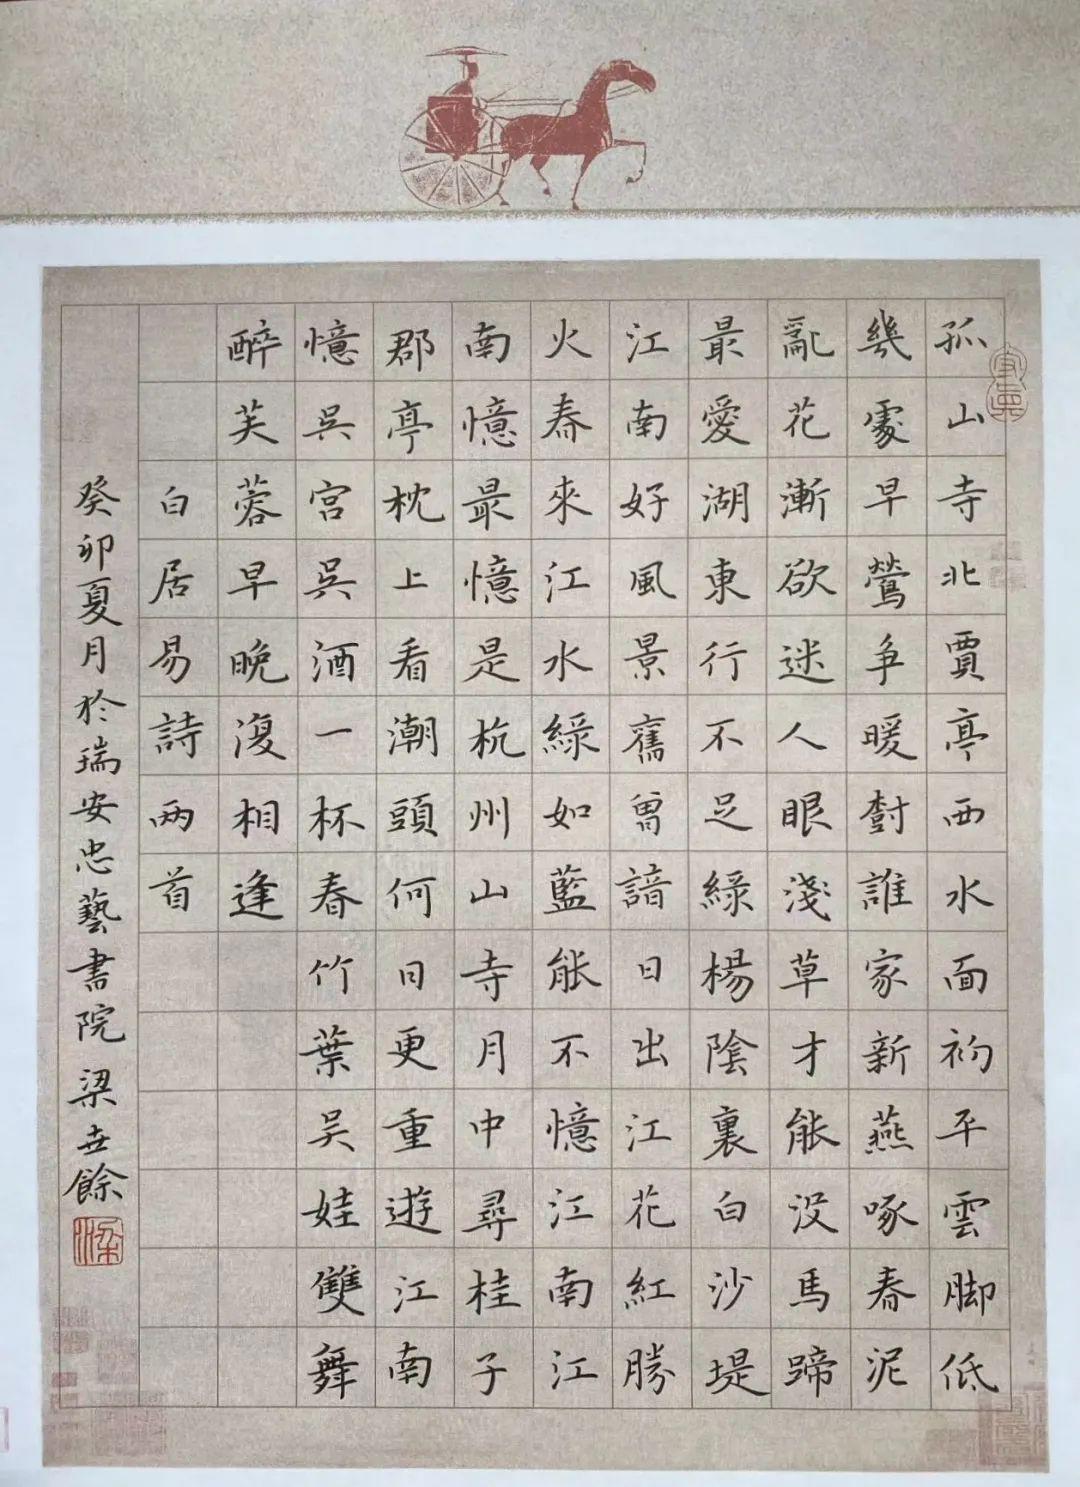 孤山寺北賈亭西水面初平雲脚低
幾處早鶯争暖樹誰家新燕啄春泥
亂花漸欲迷人眼淺草才能没馬蹄
最愛湖東行不足綠楊陰裏白沙堤
江南好風景舊曾諳日出江花紅勝
火春來江水綠如藍能不憶江南江
南憶最憶是杭州山寺月中尋桂子
郡亭枕上看潮頭何日更重遊江南
憶吳宫吳酒一杯春竹葉吴娃雙舞
醉芙蓉早晚復相逢
白居易詩两首
癸卯夏月於瑞安忠藝書院 梁世餘
梁